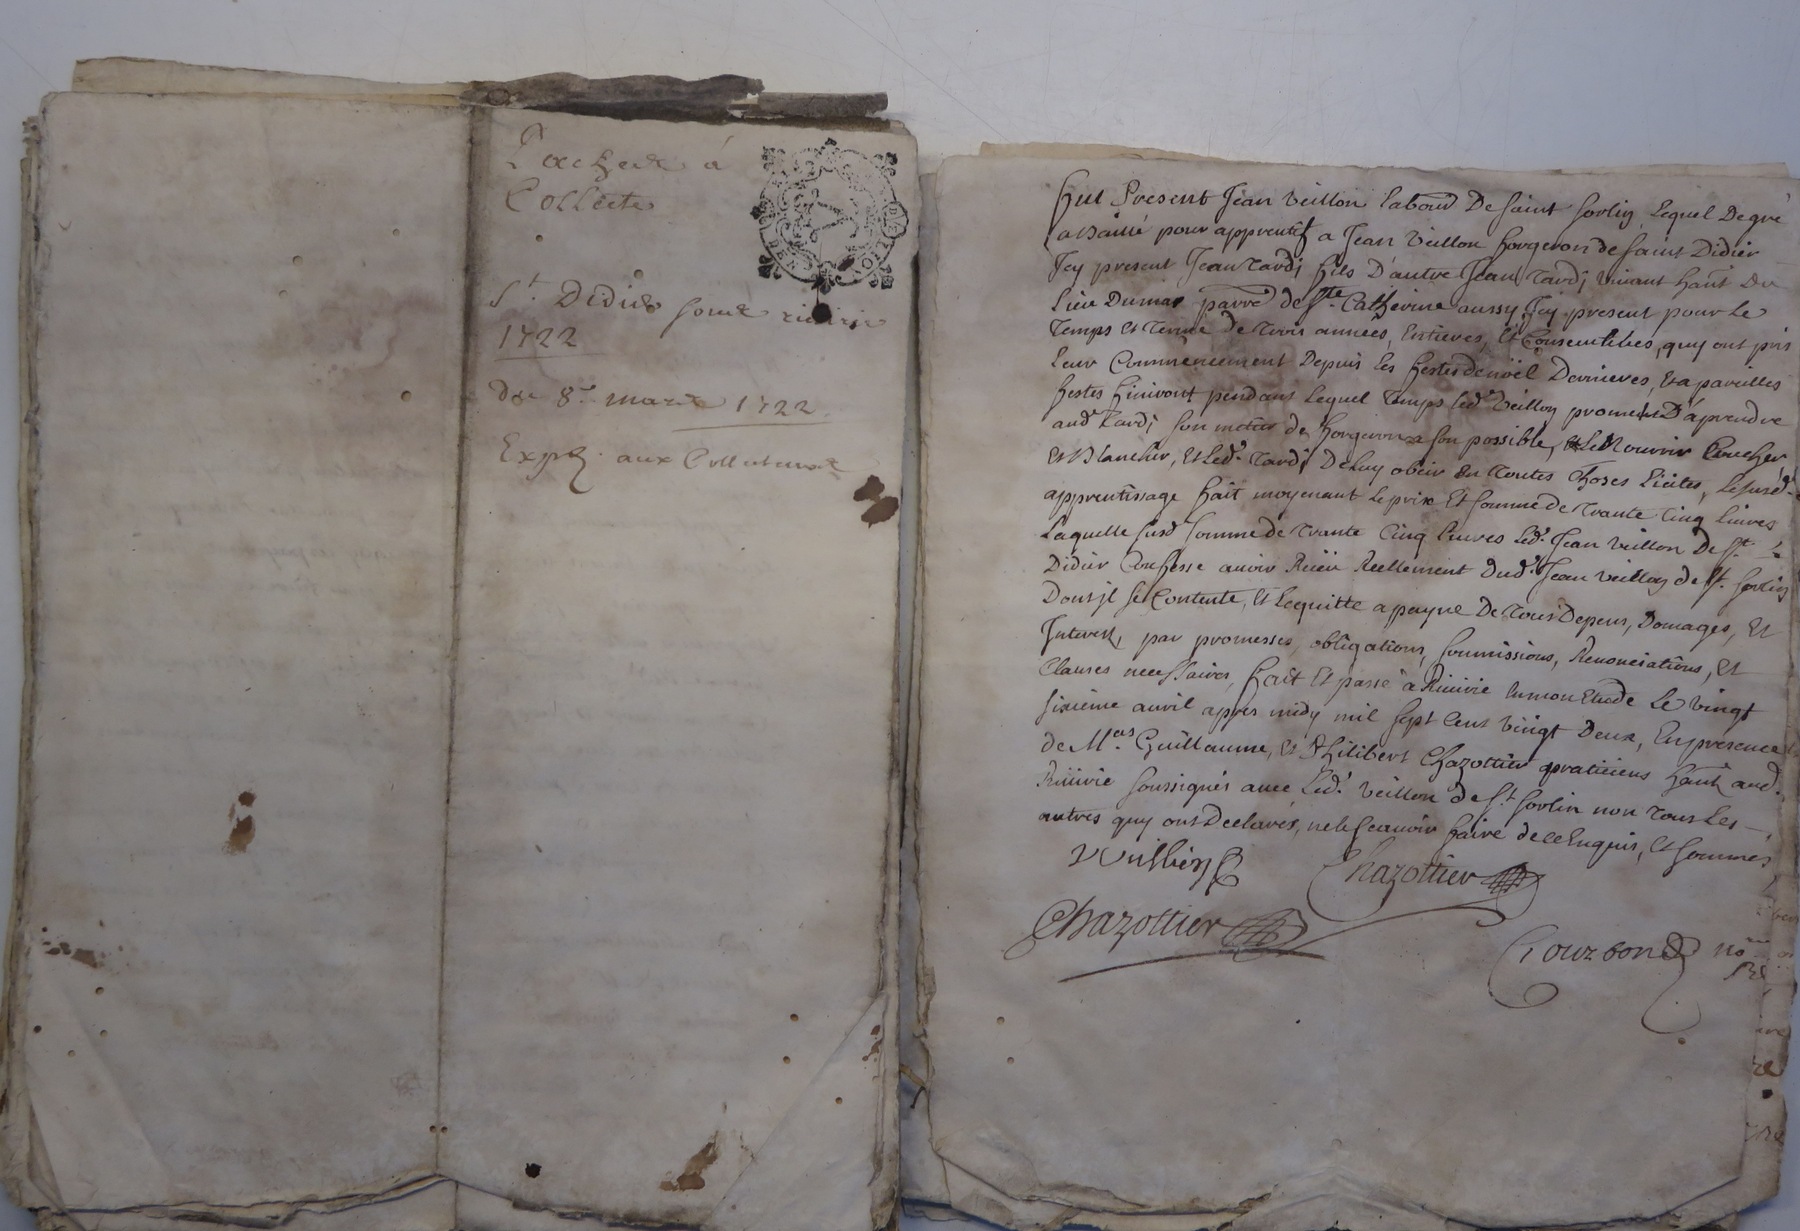 Pachet à
Collecte
St. Didier sous riverie
1722
du 8e mars 1722
Expn. aux Collecteurs
fut Present Jean Veillon labour De saint sorlin Lequel De gré
a Baillé pour apprentif a Jean Veillon forgeron de saint Didier
Jcy present Jean Tardi fils D'autre Jean Tardi vivant hant Du
Lieu Dumas parre de Ste. Catherine aussy Jcy present pour Le
Temps Et Terme de Trois années, Entieres, Et Consecutives, quy ont pris
Leur Commencement Depuis les festes de noël Dernieres, Et a pareilles
festes finiront pendant Lequel Temps led. Veillon promet D'aprendre
aud. Tardi son metier de forgeron a son possible, Et Le Nourrir Coucher
Et Blanchir, Et Led. Tardi De Luy obeir En Toutes Choses Licites, Le susd.
apprentissage fait moyenant Le prix Et somme de Trante Cinq Livres
Laquelle susd. somme de Trante Cinq Livres Led. Jean Veillon De St.
Didier Confesse avoir Reçeu Reellement dud. Jean Veillon de St. sorlin
Dont jl se Contente, Et Lequitte a peyne De Tous Depens, Domages, Et
Jnterest, par promesses, obligations, soumissions, Renonciations, Et
Clauses necessaires, fait Et passé a Riverie En mon Etude Le vingt
sixieme avril apres midy mil sept Cent vingt Deux, En presence
de Mes. Guillaume, Et Philibert Chazottier praticiens hants aud.
Riverie soussignés avec Led. Veillon de St. sorlin non Tous Les
autres quy ont Declarés, ne le sçavoir faire de ce Enquis, Et sommés
Veillion Chazottier
Chazottier
Gourbon nore